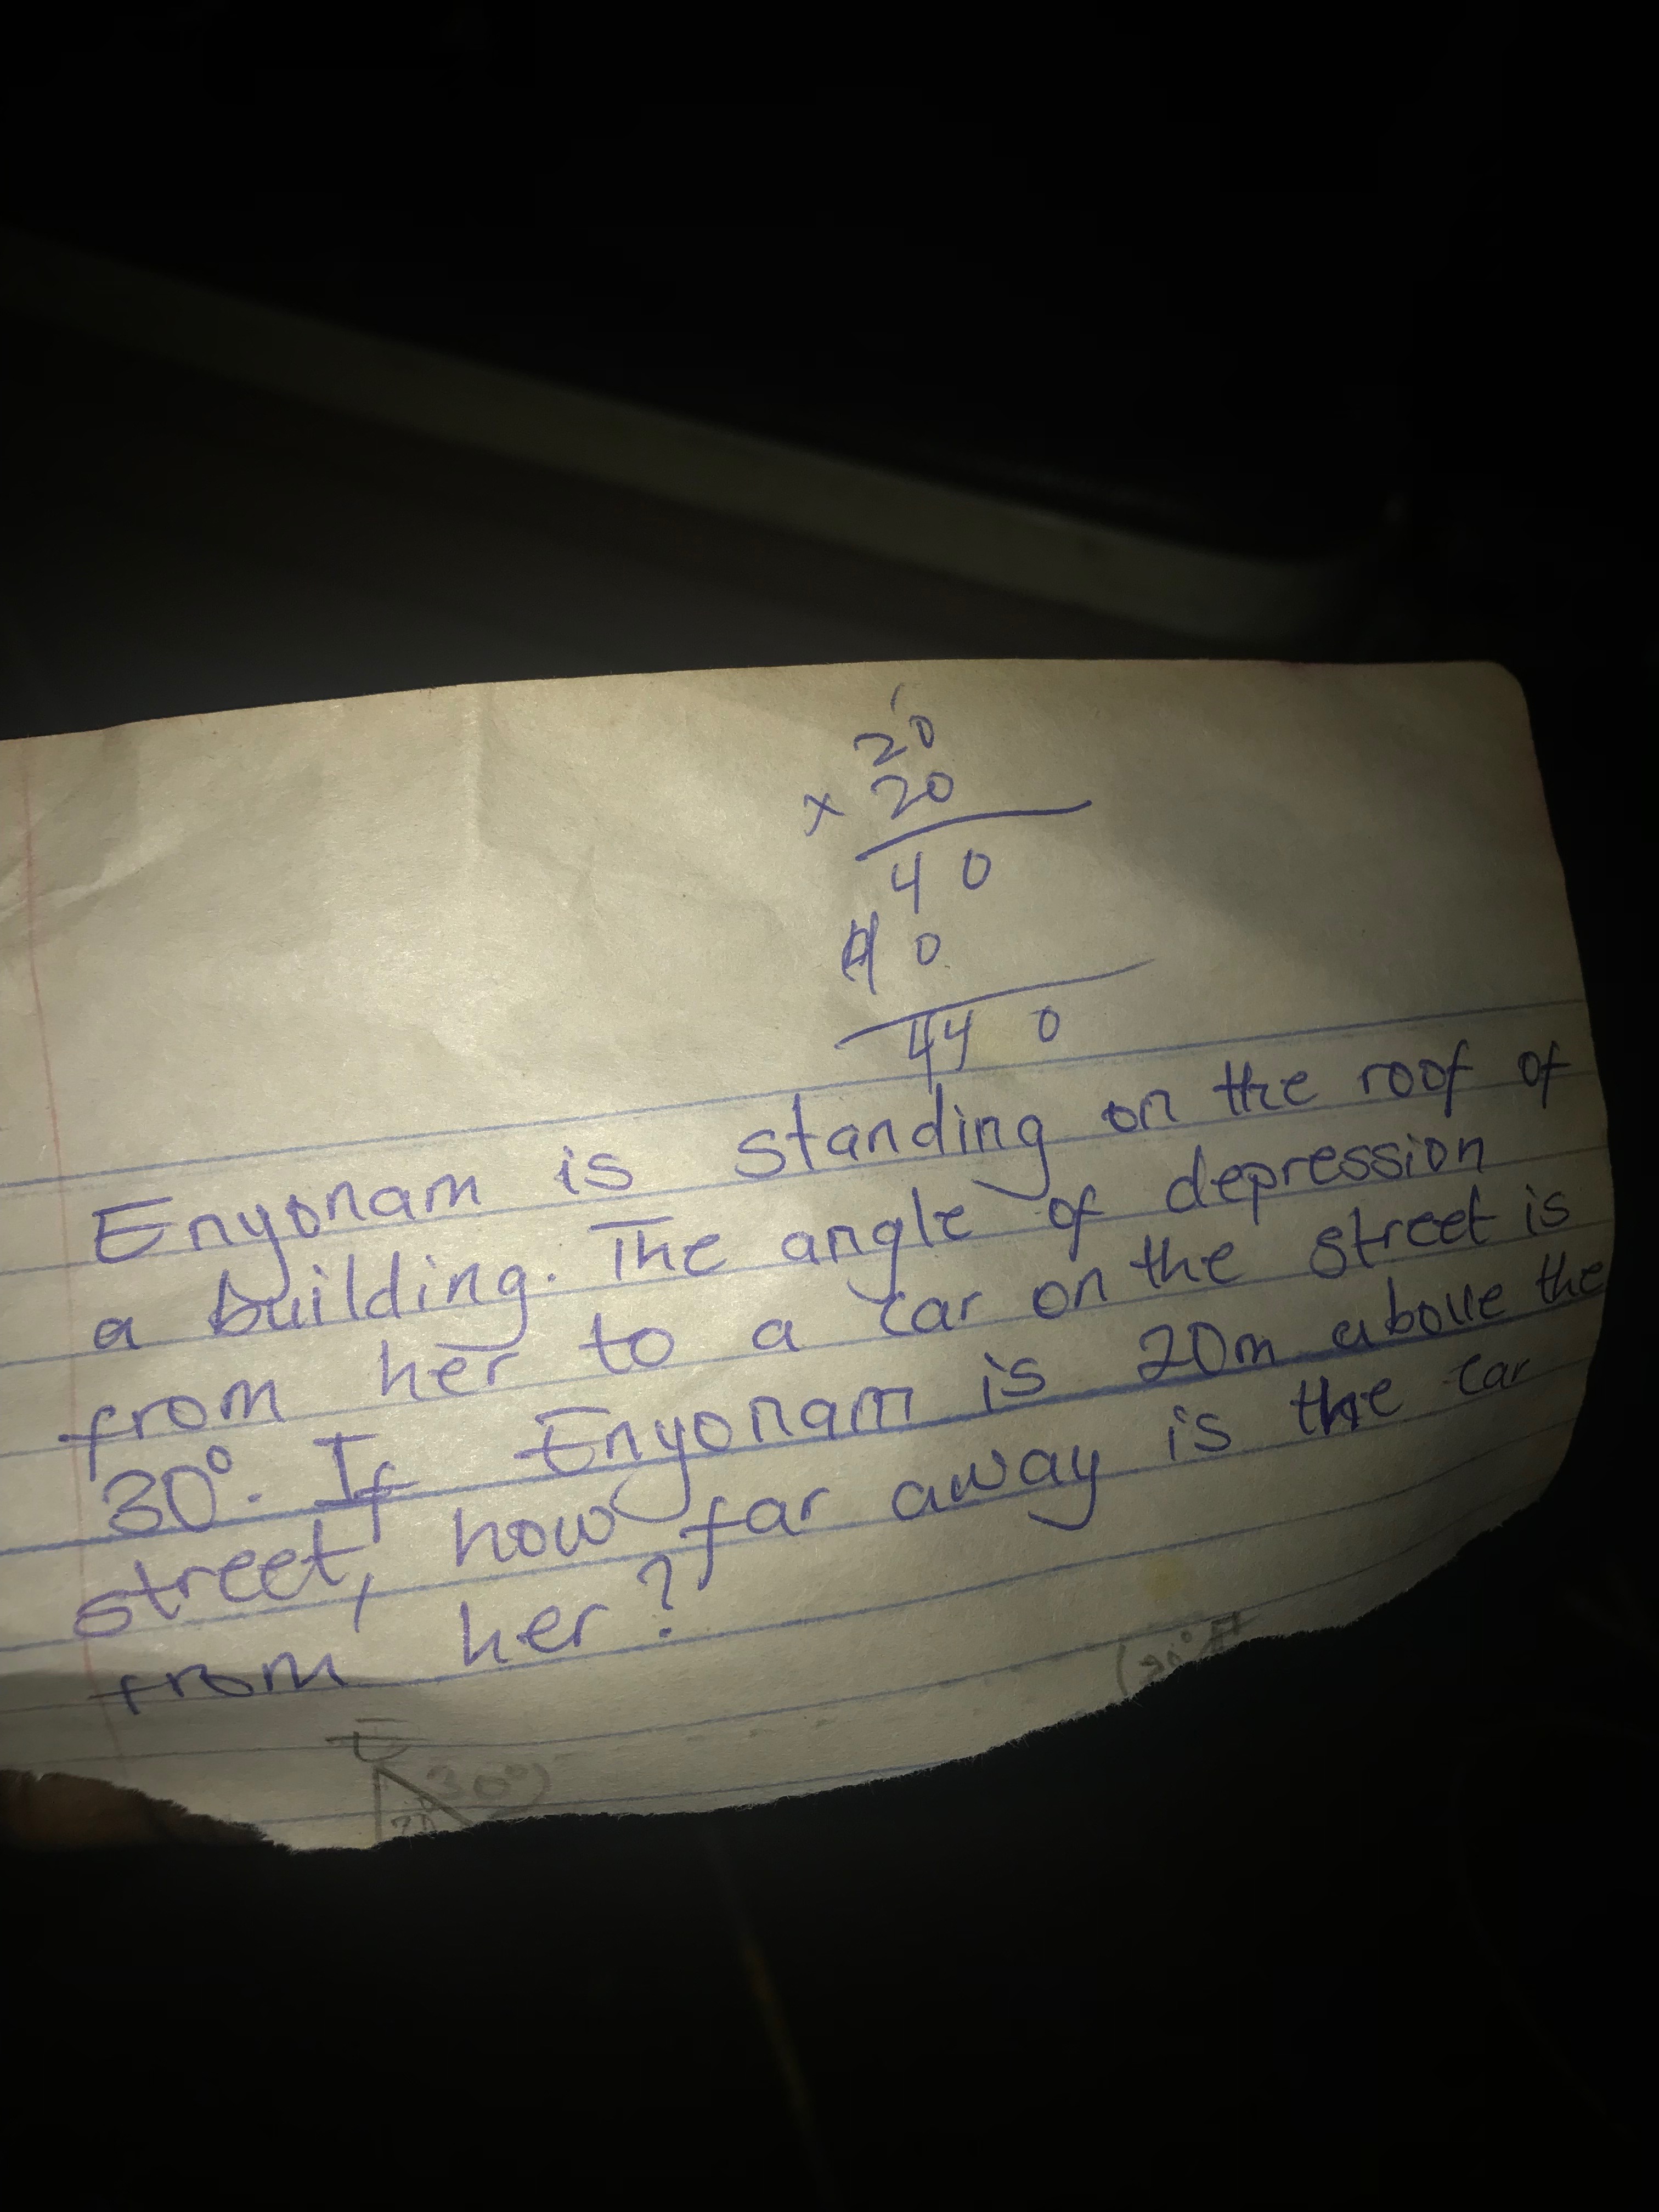 20
× 20
40
40
440
Enyonam is standing on the roof of
a building. The angle of depression
from her to a car on the street is
30°. If Enyonam is 20m above the
street, how far away is the car
from her?
E
30°
20